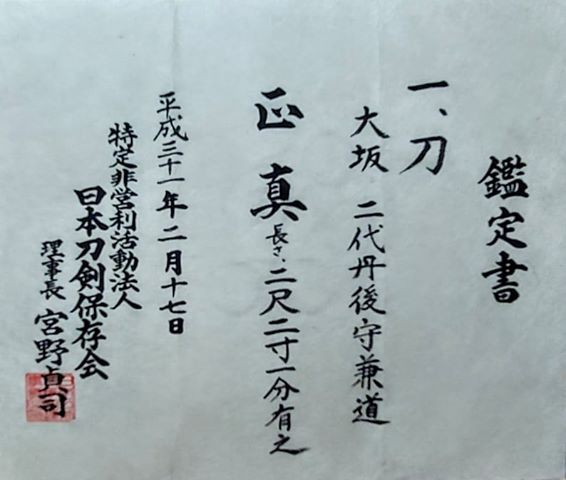 鑑定書
一、刀
大坂 二代丹後守兼道
正真 長さ、二尺二寸一分有之
平成三十一年二月十七日
特定非営利活動法人
日本刀剣保存会
理事長 宮野貞司